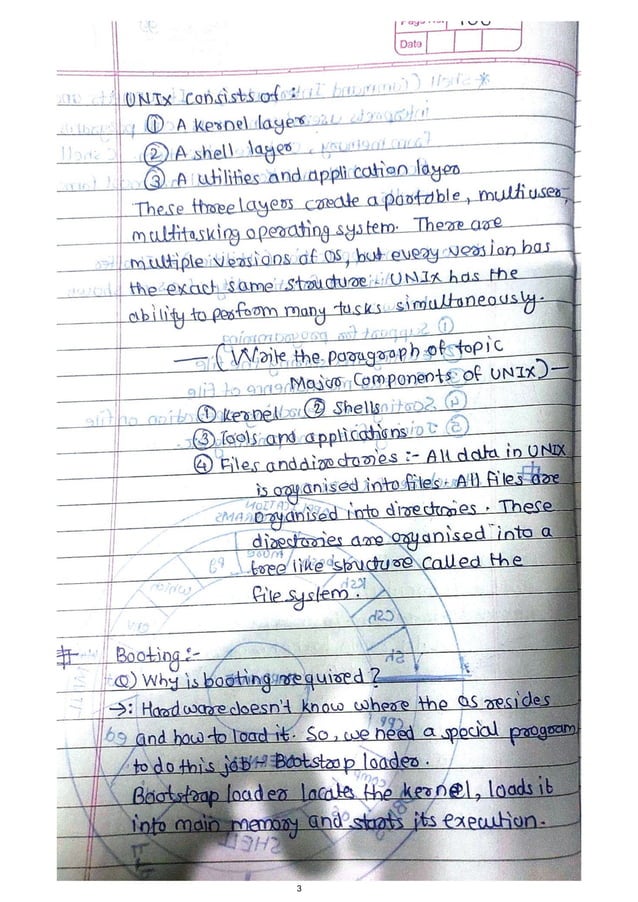 Page No.
Date
UNIX consists of :
① A kernel layer
② A shell layer
③ A utilities and application layer
These three layers create a portable, multiuser,
multitasking operating system. There are
multiple versions of OS, but every version has
the exact same structure. UNIX has the
ability to perform many tasks simultaneously.
— (Write the paragraph of topic
Major Components of UNIX) —
① Kernel ② Shells
③ Tools and applications
④ Files and directories :- All data in UNIX
is organised into files. All files are
organised into directories. These
directories are organised into a
tree like structure called the
file system.
# Booting :-
Q) Why is booting required?
→: Hardware doesn't know where the OS resides
and how to load it. So, we need a special program
to do this job - Bootstrap loader.
Bootstrap loader locates the kernel, loads it
into main memory and starts its execution.
3